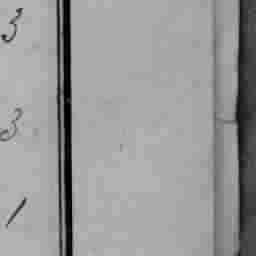 3
3
1